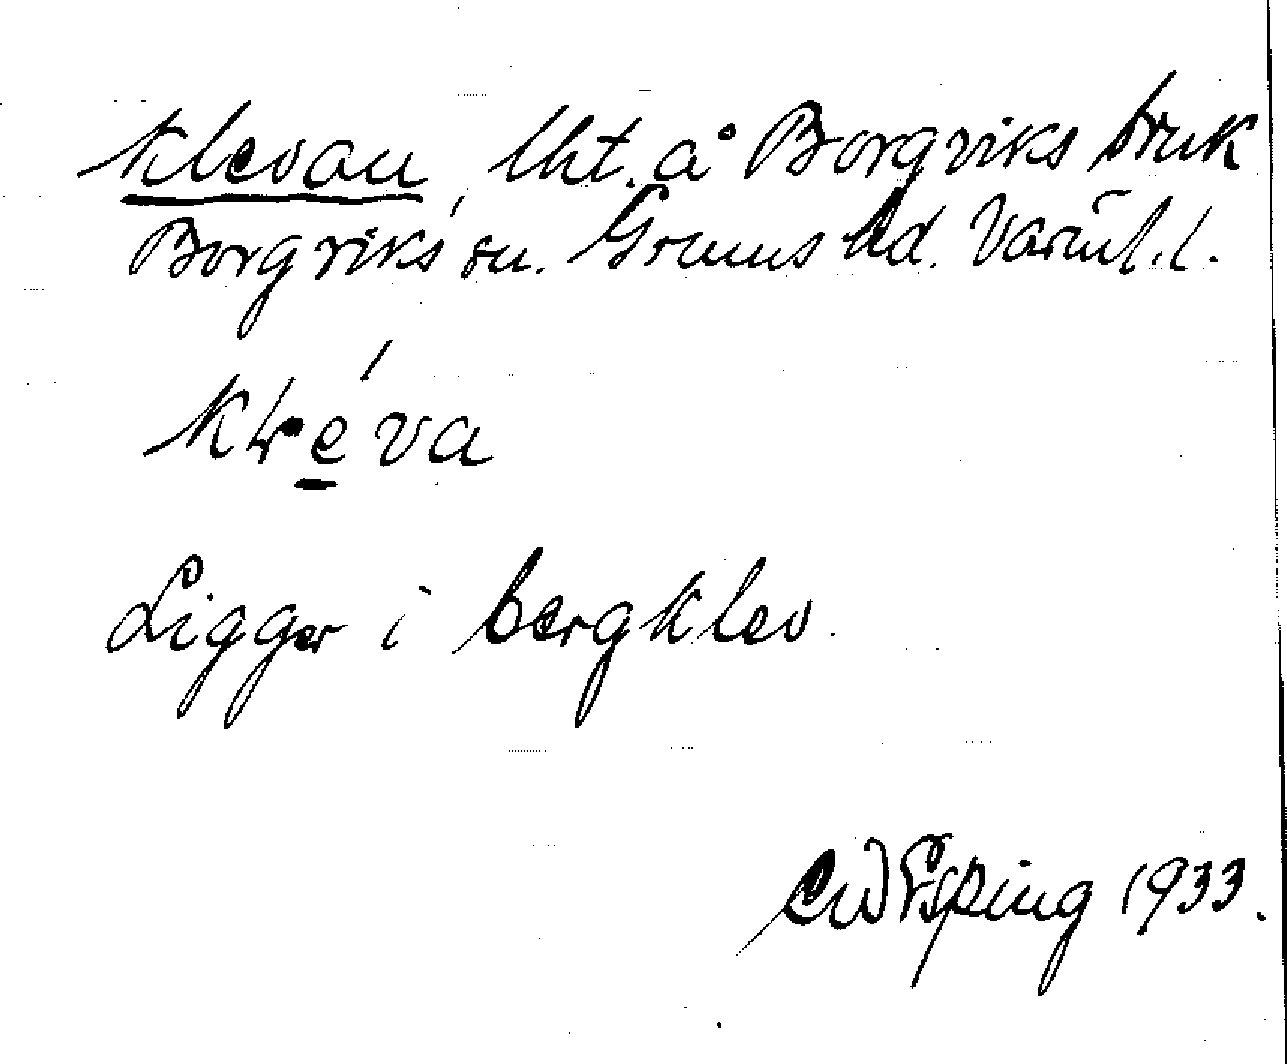 Klevan, lht. å Borgviks bruk
Borgviks sn. Grums hd. Värml. l.
kleva
Ligger i bergklev.
CW Esping 1933.